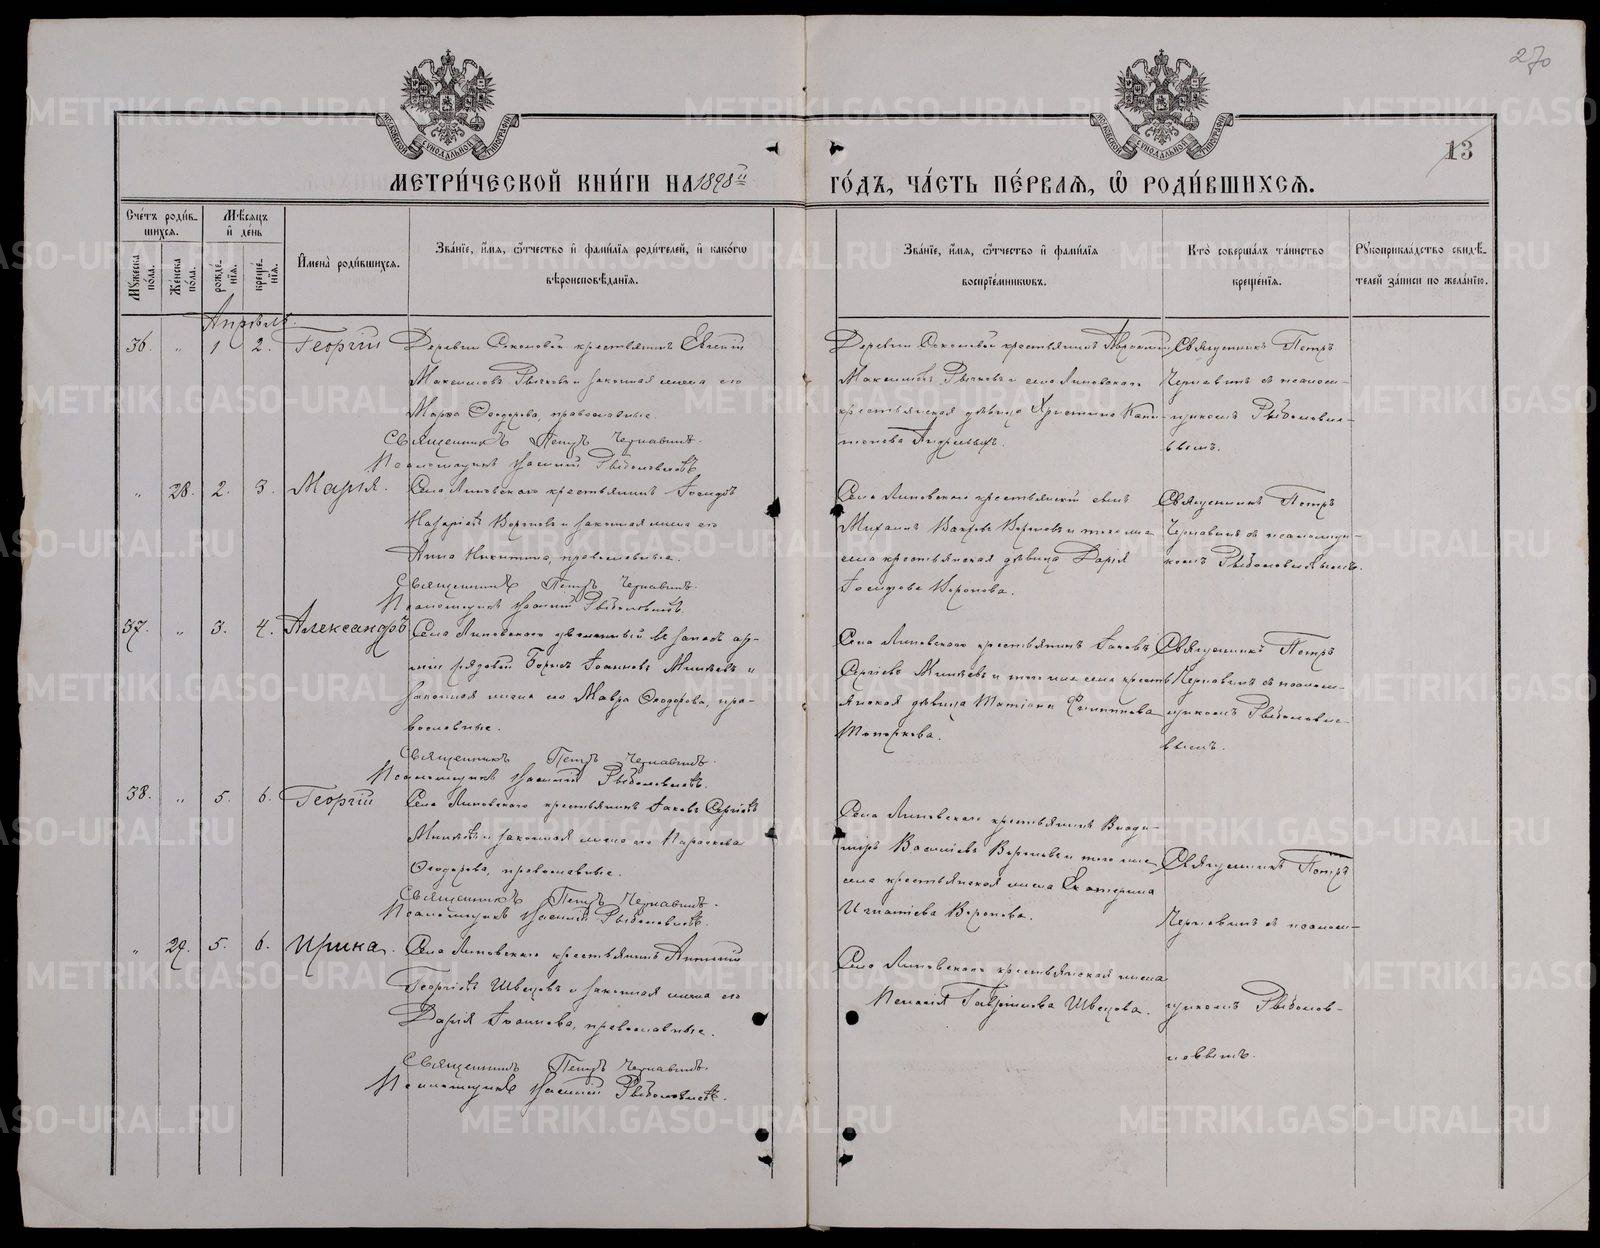 270
13
МЕТРИ́ЧЕСКОЙ КНИ́ГИ НА 1898й ГО́ДЪ, ЧА́СТЬ ПЕ́РВАЯ, Ѡ РОДИ́ВШИХСЯ.
Сче́тъ роди́в-
шихся.
Мѣсяцъ
и́ де́нь
Му́жеска по́ла.
Же́нска по́ла.
рожде́-
нїя.
креще́-
нїя.
И҆мена̀ роди́вшихся.
Зва́нїе, и҆́мя, ѻ҆́тчество и҆ фами́лїя роди́телей, и҆ како́гѡ
вѣроисповѣ́данїя.
Зва́нїе, и҆́мя, ѻ҆́тчество и҆ фами́лїя
воспрїе́мникѡвъ.
Кто̀ соверша́лъ та́инство
креще́нїя.
Рꙋкоприкла́дство свидѣ́-
телей за́писи по жела́нїю.
Апрѣль.
36. " 1 2. Георгій
Деревни крестьянинъ Евгеній
Максимовъ Рычковъ и законная жена его
Марѳа Ѳеодорова, православные.
Священникъ Петръ Чернавинъ.
Псаломщикъ Рыболовлевъ
Деревни крестьянинъ
Максимовъ Рычковъ и села Липовскаго
крестьянская дѣвица Христина Капи-
тонова
Священникъ Петръ
Чернавинъ съ псалом-
щикомъ Рыболовле-
вымъ.
" 28. 2. 3. Марія.
Села Липовскаго крестьянинъ Іосифъ
Назаріевъ Вороновъ и законная жена его
Анна Никитина, православные.
Священникъ Петръ Чернавинъ.
Псаломщикъ Рыболовлевъ.
Села Липовскаго крестьянскій сынъ
Михаилъ Вороновъ и того же
села крестьянская дѣвица Дарія
Іосифова Воронова.
Священникъ Петръ
Чернавинъ съ псаломщи-
комъ Рыболовлевымъ.
37. " 3. 4. Александръ
Села Липовскаго уволенный въ запасъ ар-
міи рядовой Борисъ Іоанновъ Минѣевъ и
законная жена его Мавра Ѳеодорова, пра-
вославные.
Священникъ Петръ Чернавинъ.
Псаломщикъ Рыболовлевъ.
Села Липовскаго крестьянинъ Іаковъ
Сергіевъ Минѣевъ и того же села кресть-
янская дѣвица Татіана Филиппова
Топоркова.
Священникъ Петръ
Чернавинъ съ псалом-
щикомъ Рыболовле-
вымъ.
38. " 5. 6. Георгій
Села Липовскаго крестьянинъ Іаковъ Сергіевъ
Минѣевъ и законная жена его Параскева
Ѳеодорова, православные.
Священникъ Петръ Чернавинъ.
Псаломщикъ Рыболовлевъ.
Села Липовскаго крестьянинъ Влади-
міръ Василіевъ Вороновъ и того же
села крестьянская жена Екатерина
Игнатіева Воронова.
Священникъ Петръ
Чернавинъ съ псалом-
" 29. 5. 6. Ирина.
Села Липовскаго крестьянинъ
Георгіевъ Швецовъ и законная жена его
Дарія Іоаннова, православные.
Священникъ Петръ Чернавинъ.
Псаломщикъ Рыболовлевъ.
Села Липовскаго крестьянская жена
Пелагія Гавріилова Швецова.
щикомъ Рыболов-
левымъ.
METRIKI.GASO-URAL.RU